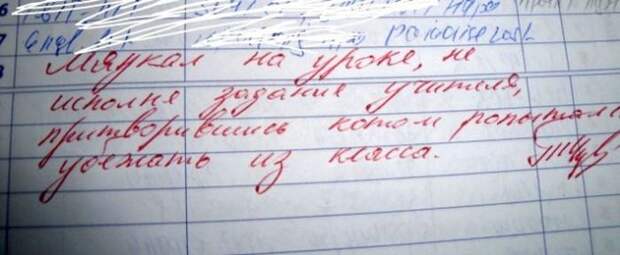 Мяукал на уроке, не
исполня задание учителя,
притворившись котом попытался
убежать из класса.